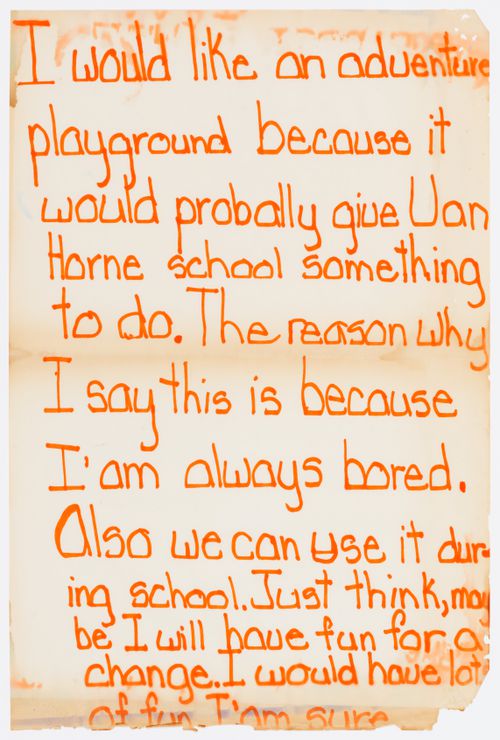 I would like an adventure
playground because it
would probally give Van
Horne school something
to do. The reason why
I say this is because
I'am always bored.
Also we can use it dur-
ing school. Just think, may
be I will have fun for a
change. I would have lots
of fun I'am sure